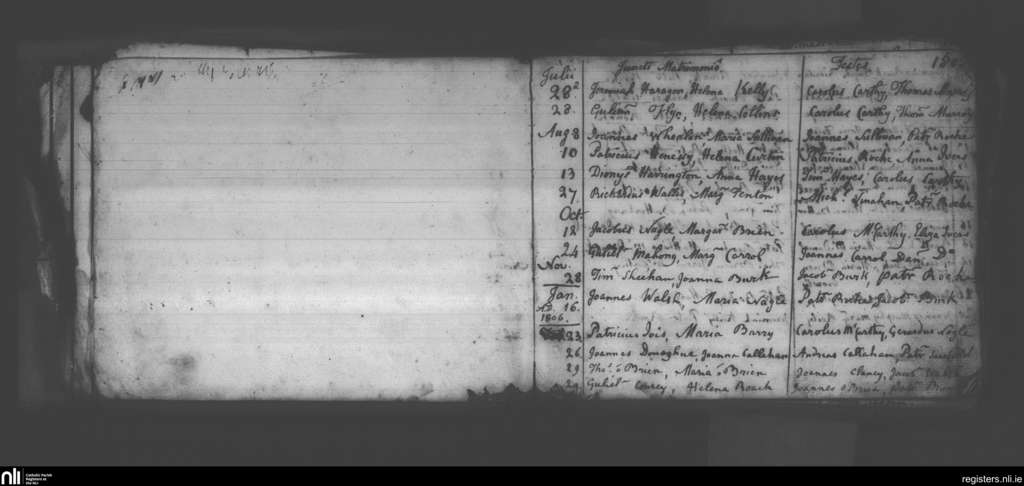 Julii Juncti Matrimonio Testes
28 Jeremiah Haragan, Helena Kelly Carolus Carthy, Thomas
28. Gulielm Helena Collins Carolus Carthy, Thom Murray
Aug 8 Joannes Wheelen Maria Sullivan Joannes Sullivan, Patr Roche
10 Patricius Henessy, Helena Curtin Patricius Roche Anna
13 Dionys Harrington, Anna Hayes Tim Hayes, Carolus Carthy
27 Richardus Walsh, Marg Fenton Mich Linahan, Patr Roche
Oct
12 Jacobus Nagle Margar Brien Carolus McCarthy, Eliza
24 Guliel Mahony, Marg Carrol Joannes Carrol, Dan D
Nov.
28 Tim Sheehan, Joanna Burk Jacob Burk, Patr Roche
Jan. 16. Joannes Walsh, Maria Nagle Patr Roche, Jacob Burk
A.D. 1806.
23 Patricius Jois, Maria Barry Carolus McCarthy, Gerardus Nagle
26 Joannes Donoghue, Joanna Callaham Andreas Callaham, Patr
29 Tho. o Brien, Maria o Brien Joannes Clancy, Jacob
29 Guliel Helena Roach Joannes o Brien,
nli Catholic Parish
Registers at
the NLI
registers.nli.ie